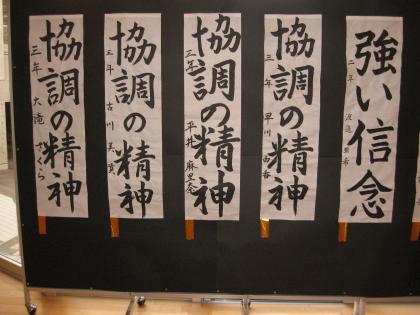 協調の精神
三年 大滝 さくら
協調の精神
三年 古川 美
協調の精神
三年 平井 麻里奈
協調の精神
三年 早川 由香
強い信念
二年 渡邉 亜希